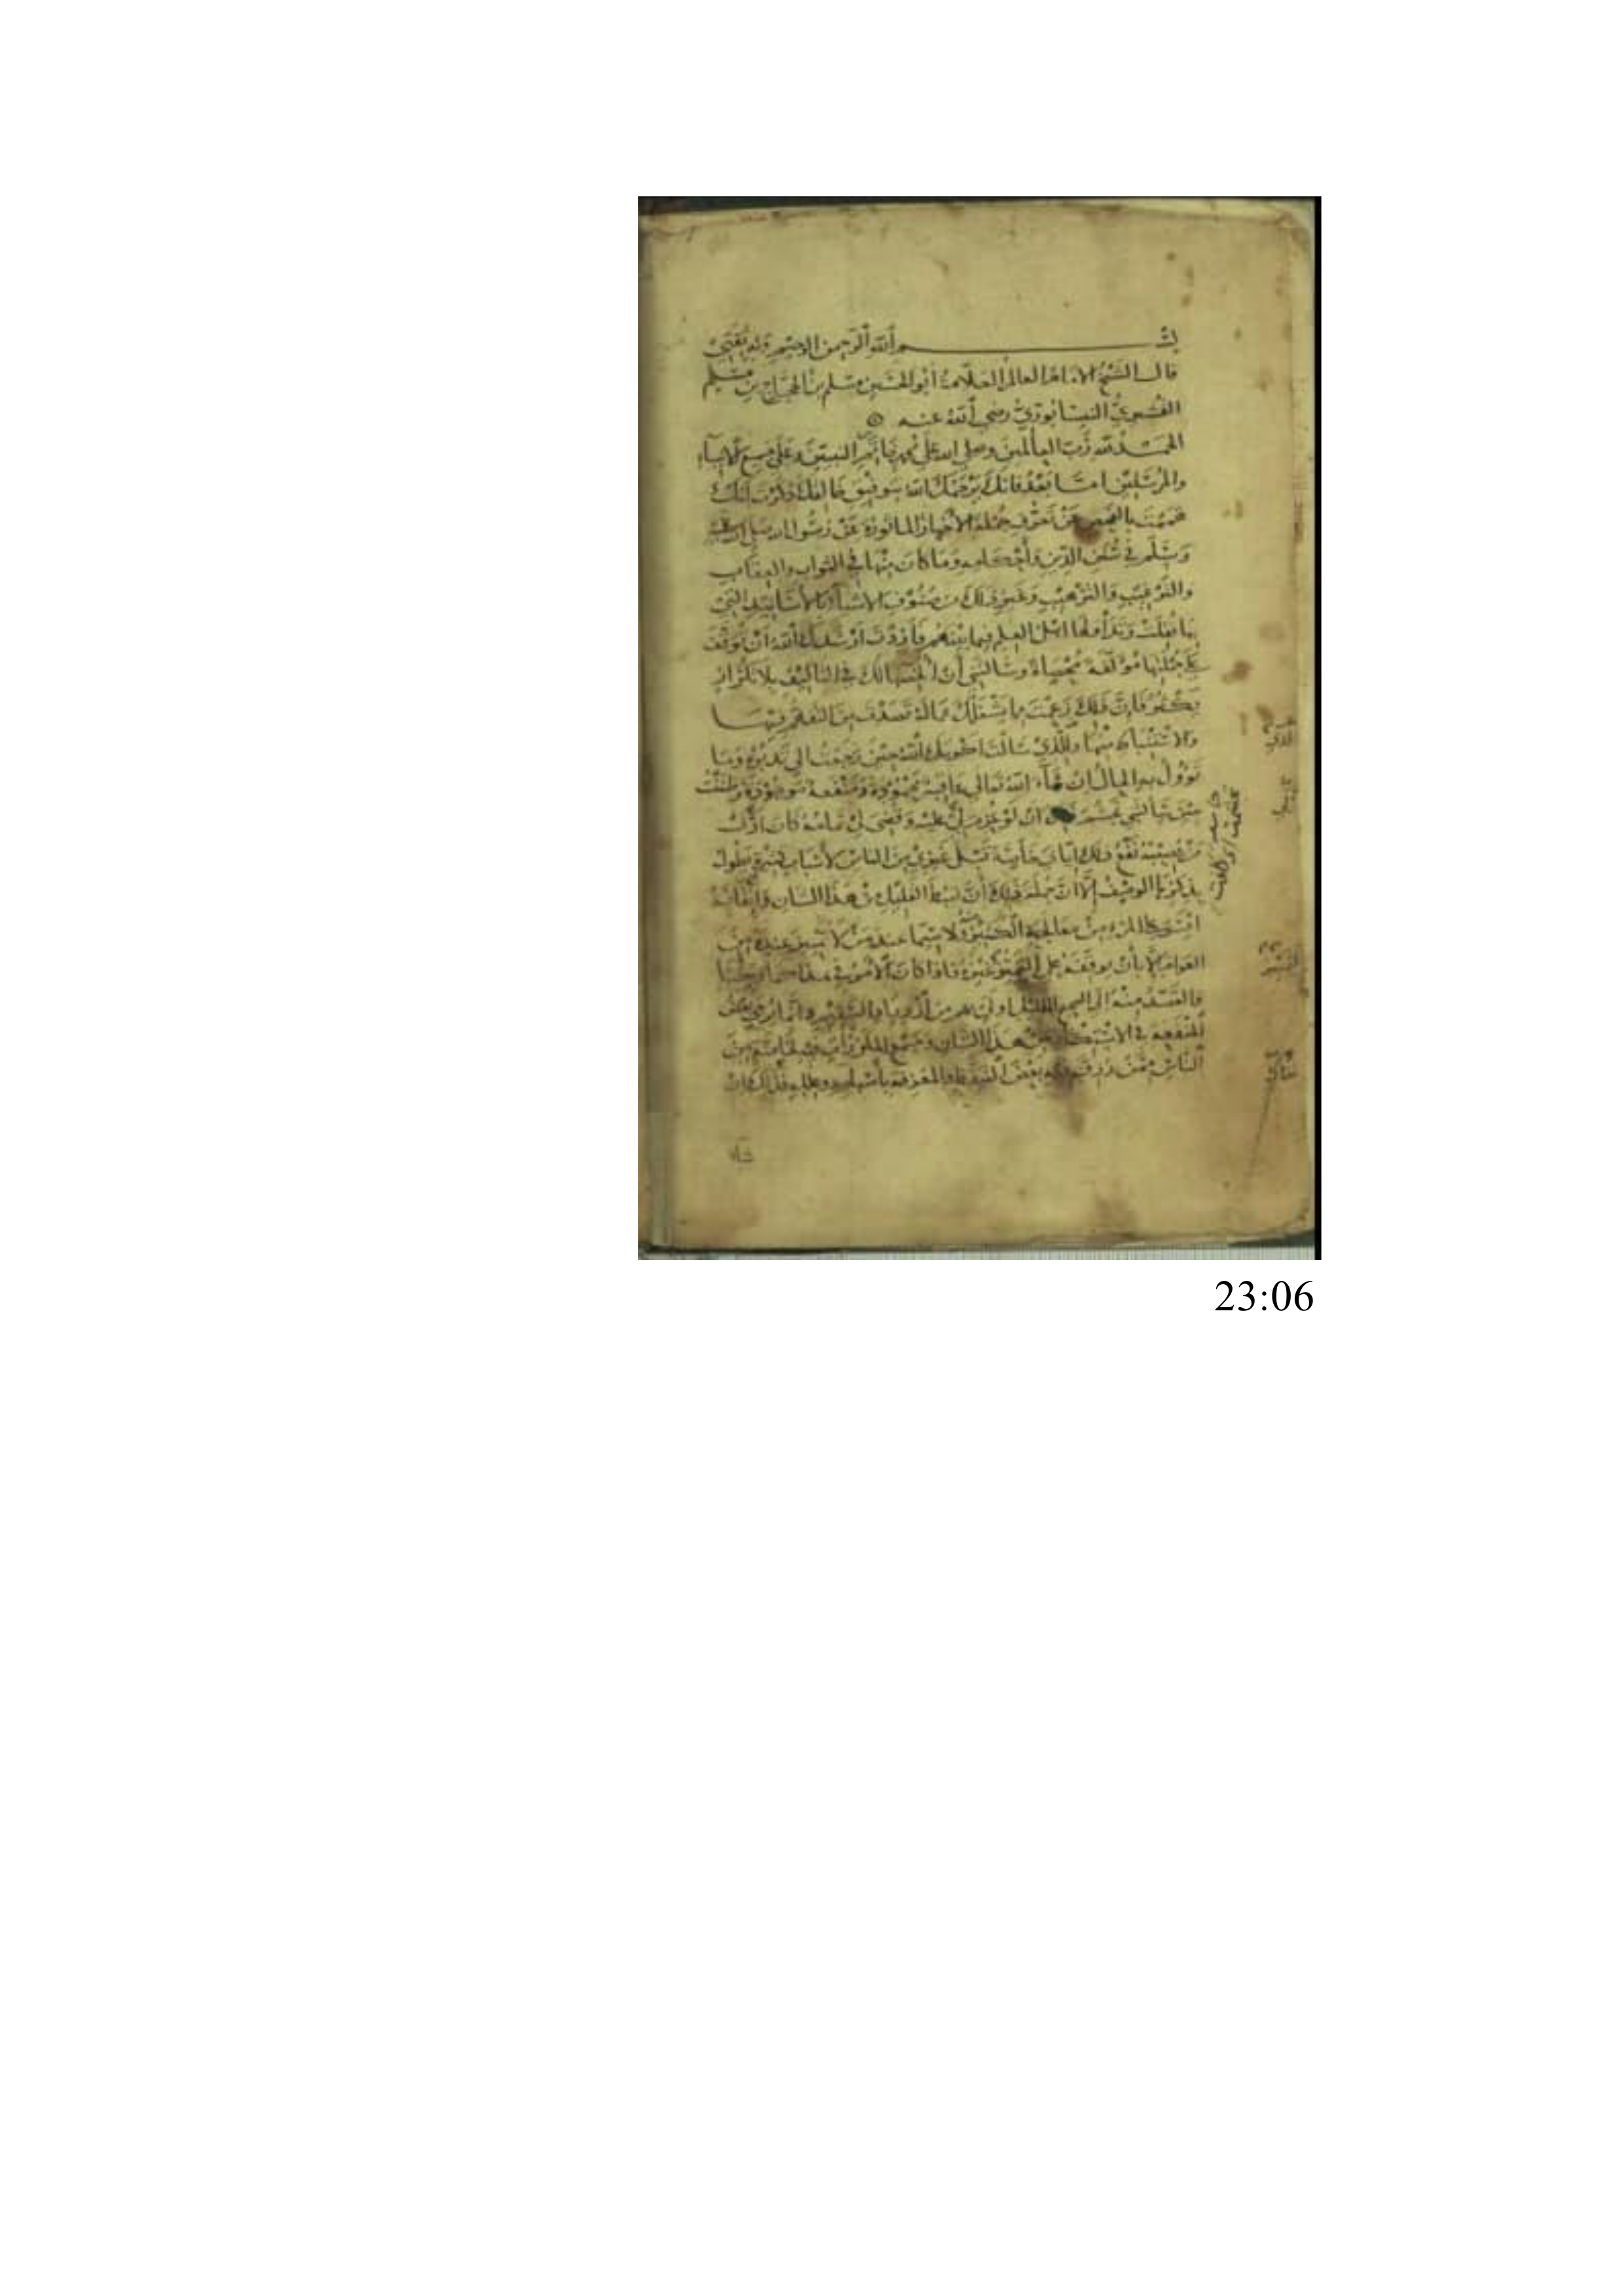 بسم الله الرحمن الرحيم وبه ثقتي
قال الشيخ الامام العالم العلامة أبو الحسين مسلم بن الحجاج بن مسلم
القشيري النيسابوري رضي الله عنه
الحمد لله رب العالمين وصلى الله على محمد خاتم النبيين وعلى جميع الانبياء
والمرسلين اما بعد فانك يرحمك الله بتوفيق خالقك ذكرت انك
هممت بالفحص عن تعرف جملة الأخبار الماثورة عن رسول الله صلى الله عليه
وسلم في سنن الدين وأحكامه وما كان منها في الثواب والعقاب
والترغيب والترهيب وغير ذلك من صنوف الاشيآء بالأسانيد التي
بها نقلت وتداولها اهل العلم فيما بينهم فأردت ارشدك الله أن توقف
على جملتها مؤلفة محصاة وسالتني أن ألخصها لك في التاليف بلا تكرار
يكثر فإن ذلك زعمت مما يشغلك عما له قصدت من التفهم فيها
والاستنباط منها وللذي سالت اكرمك الله حين رجعت الى تدبره وما
تؤول به الحال إن شاء الله تعالى عاقبة محمودة ومنفعة موجودة وظننت
حين سالتني تجشم ان لو عزم لي عليه وقضي لي تمامه كان اول
من يصيبه نفع ذلك إياي خاصة قبل غيري من الناس لأسباب كثيرة يطول
بذكرها الوصف إلا ان جملة ذلك أن ضبط القليل من هذا الشان وإتقانه
ايسر على المرء من معالجة الكثير ولا سيما عند من لا تمييز عنده من
العوام إلا بأن يوقفه على التمييز غيره فاذا كان الأمر في هذا كما وصفنا
فالقصد منه الى الصحيح القليل اولى بهم من ازدياد السقيم وانما يرجى بعض
المنفعة في الاستكثار من هذا الشان وجمع المكررات منه لخاصة من
الناس ممن رزق فيه بعض التيقظ والمعرفة بأسبابه وعلله فذلك ان
شاء
23:06